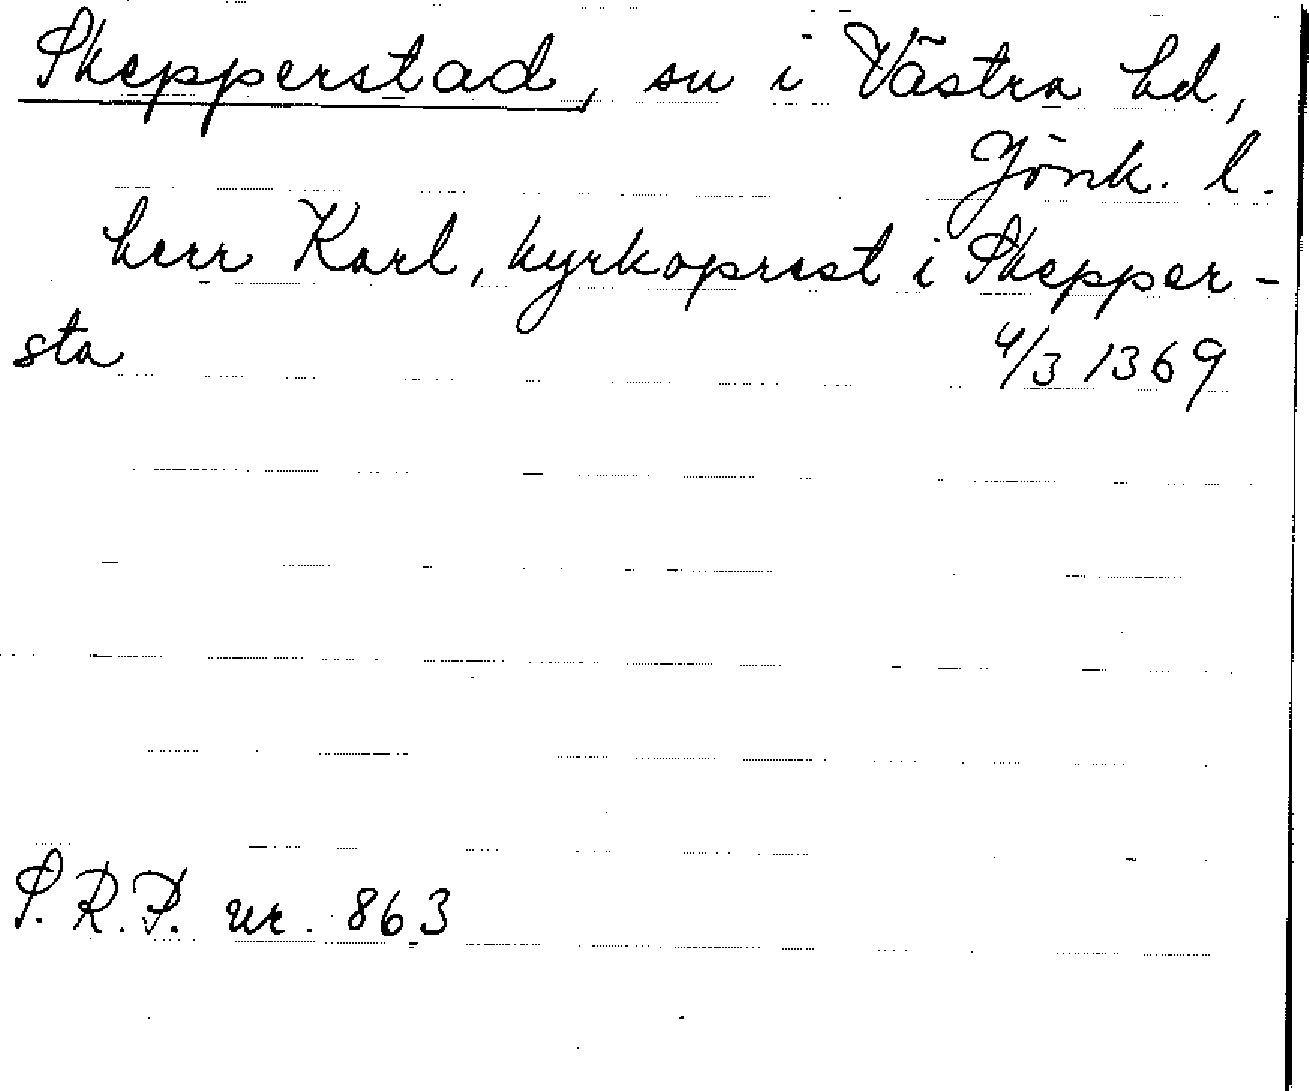 Skepperstad, sn i Västra hd,
Jönk. l.
herr Karl, kyrkoprest i Skepper-
sta 4/3 1369
S.R.P. nr. 863